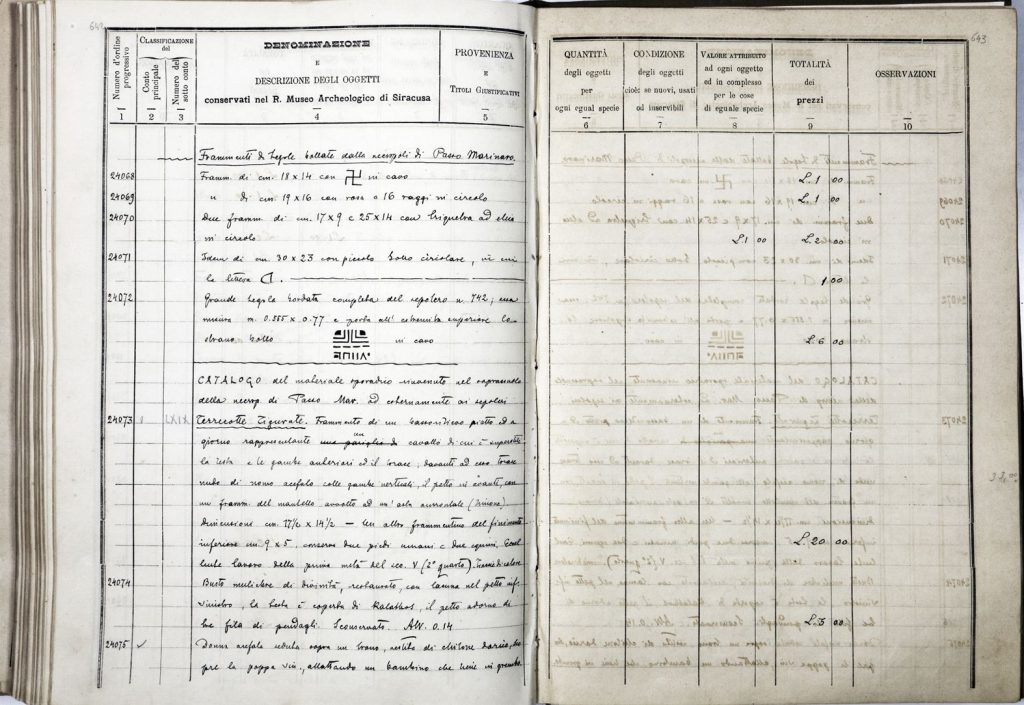 642
Numero d'ordine progressivo
CLASSIFICAZIONE del
Conto principale
Numero del sotto conto
DENOMINAZIONE
E
DESCRIZIONE DEGLI OGGETTI
conservati nel R. Museo Archeologico di Siracusa
PROVENIENZA
E
TITOLI GIUSTIFICATIVI
1 2 3 4 5
Frammenti di tegole bollate dalla necropoli di Passo Marinaro.
24068 Framm. di cm. 18 x 14 con 卐 in cavo
24069 " di cm. 19 x 16 con rosa a 16 raggi in circolo
24070 Due framm. di cm. 17 x 9 e 25 x 14 con triquetra ad elica
in circolo
24071 Idem di cm. 30 x 23 con piccolo bollo circolare, in cui
la lettera
24072 Grande tegola bordata completa del sepolcro n. 742; essa
misura m. 0.555 x 0.77 e porta all' estremità superiore lo
strano bollo in cavo
CATALOGO del materiale sporadico rinvenuto nel soprassuolo
della necrop. di Passo Mar. ed esternamente ai sepolcri
24073 1 LXIX Terrecotte figurate. Frammento di un bassorilievo piatto ed a
giorno rappresentante una pariglia di un cavallo di cui è superstite
la testa e le gambe anteriori ed il torace; davanti ad esso torace
nudo di uomo acefalo colle gambe verticali, il petto in avanti, con
un framm. del mantello avvolto ad un'
dimensioni cm. 17½ x 14½ — Un altro frammentino del finimento
inferiore cm. 9 x 5, conserva due piedi umani e due equini. Eccel-
lente lavoro della prima metà del sec. V (2° quarto). Tracce di colore
24074 Busto muliebre di divinità, restaurato, con lacuna nel petto inf.
sinistro, la testa è coperta di Kalathos, il petto adorno di
tre fila di pendagli. Sconservato. Alt. 0.14
24075 ✓ Donna acefala seduta sopra un trono, vestita di chitone dorico, sco-
pre la poppa sin., allattando un bambino che tiene in grembo
643
QUANTITÀ
degli oggetti
per
ogni egual specie
CONDIZIONE
degli oggetti
cioè: se nuovi, usati
od inservibili
VALORE ATTRIBUITO
ad ogni oggetto
ed in complesso
per le cose
di eguale specie
TOTALITÀ
dei
prezzi
OSSERVAZIONI
6 7 8 9 10
L. 1 00
L. 1 00
L. 1 00 L. 2 00
1 00
L. 6 00
L. 20 00
L. 5 00